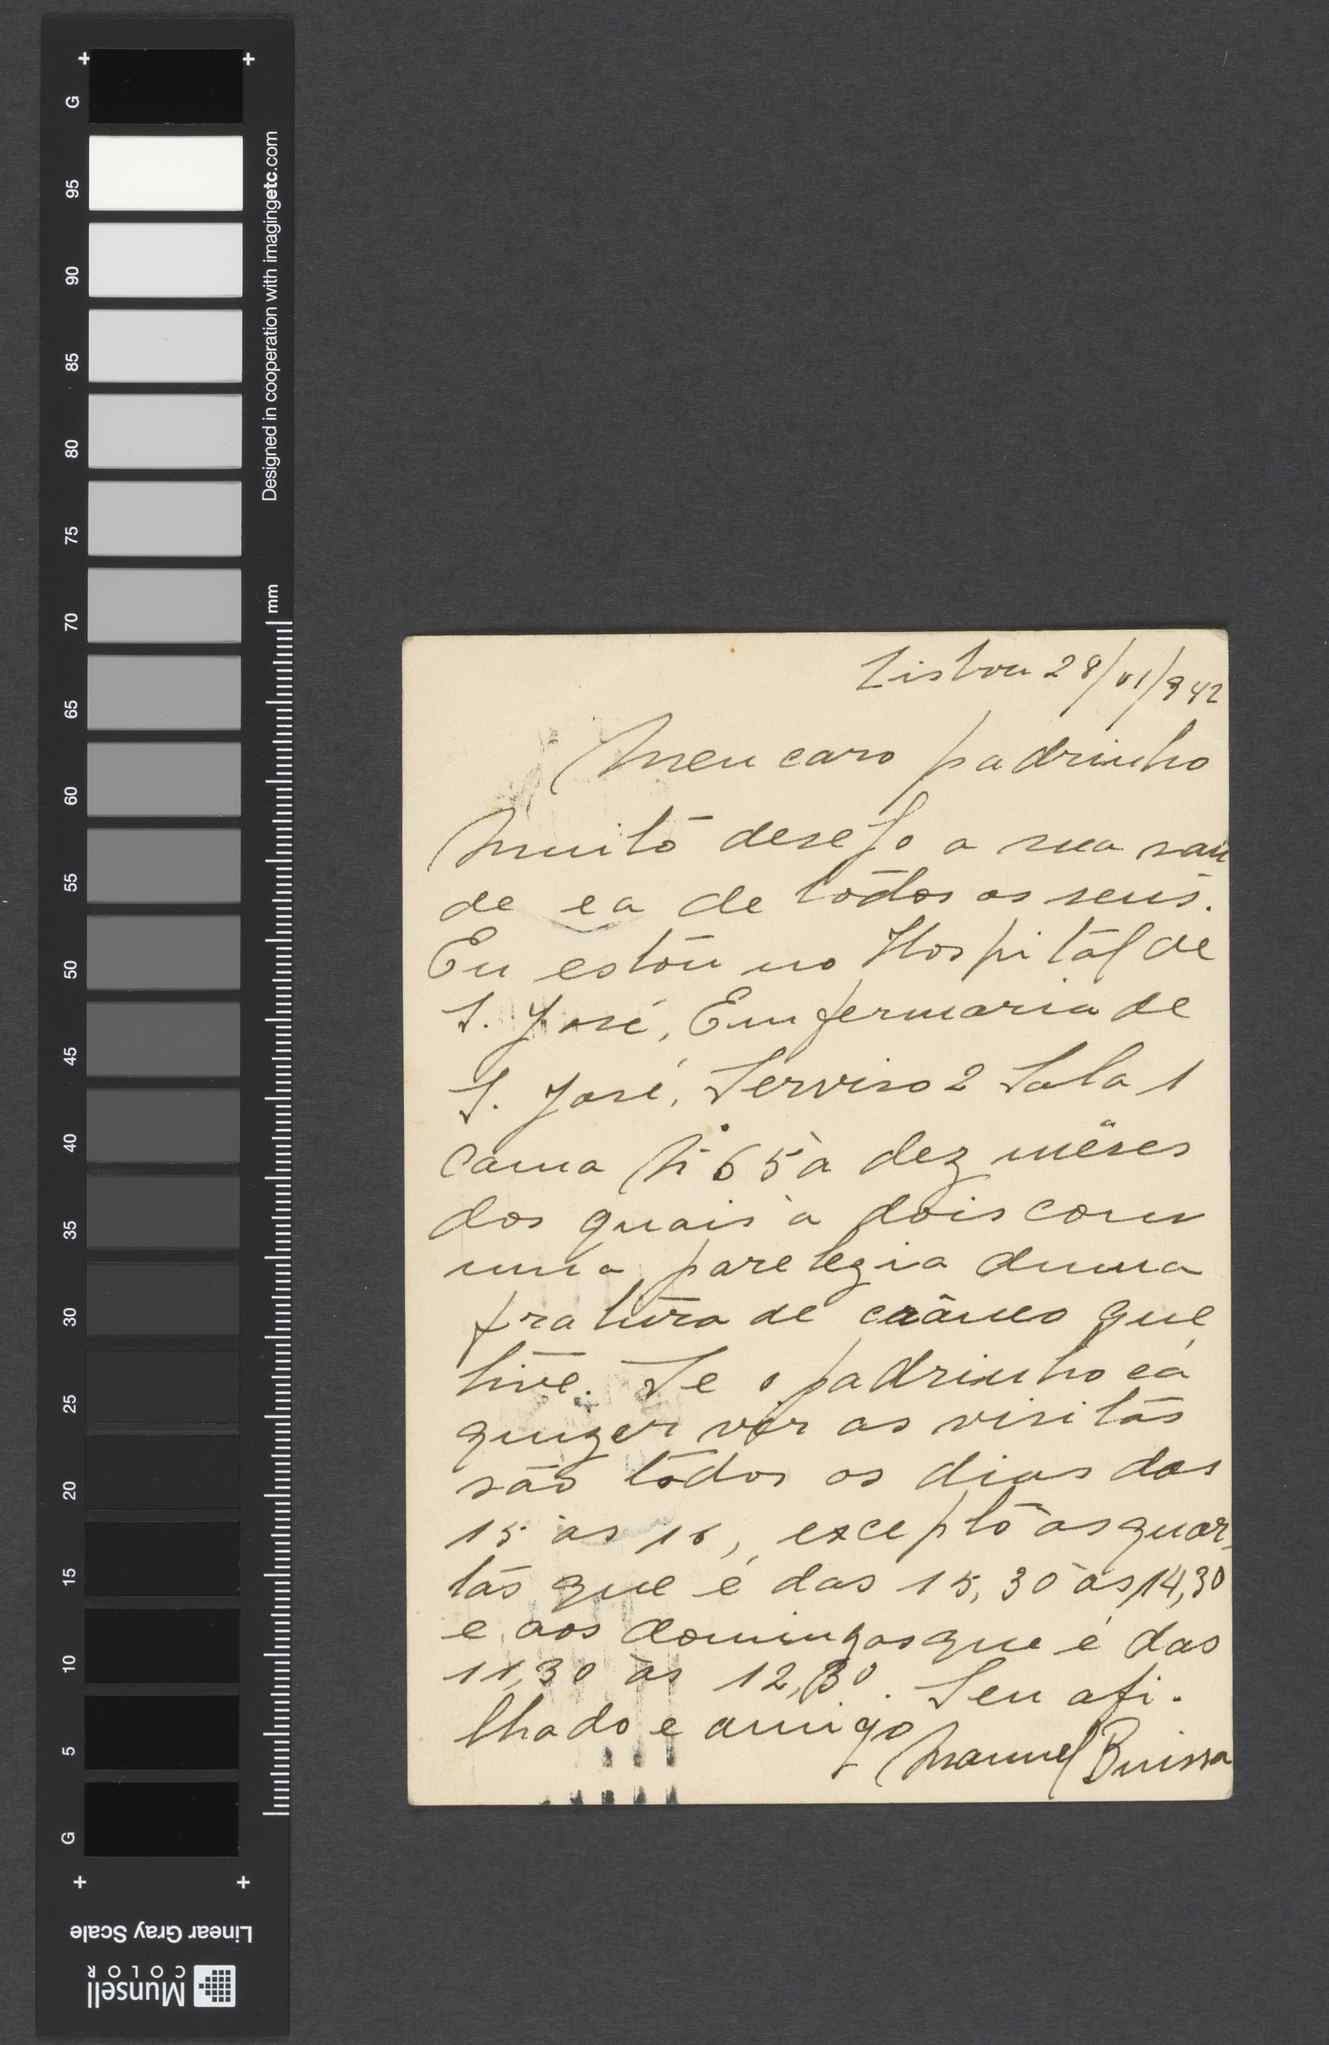 G
95
90
85
80
75
70
65
60
55
50
45
40
35
30
25
20
15
10
5
G
Designed in cooperation with imagingetc.com
mm
Linear Gray Scale
Munsell
COLOR
Lisboa 28/VI/942
Meu caro padrinho
Muito desejo a sua saú
de e a de todos os seus.
Eu estou no Hospital de
S. José, Emfermaria de
S. José, Serviso 2 Sala 1
Cama Nº 65 à dez mêses
dos quais à dois com
uma parelezia duma
fratura de crâneo que
tive. Se o padrinho cá
quizer vir as visitas
são todos os dias das
15 ás 16, excepto as quar
tas que é das 15,30 ás 14,30
e aos domingos que é das
11,30 ás 12,30. Seu afi-
lhado e amigo
Manuel Buissa